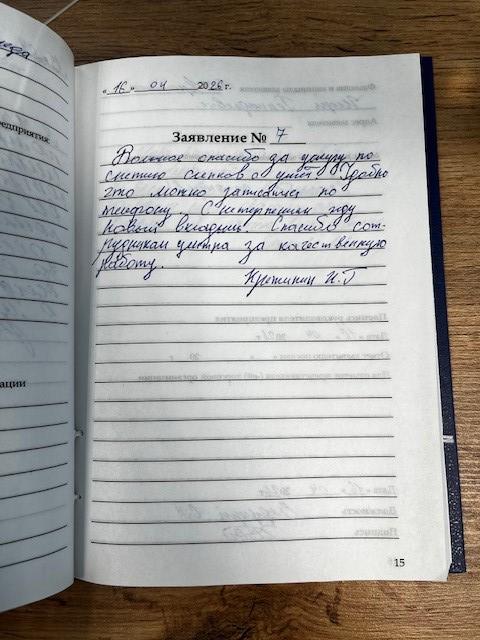 «16» 04 2026 г.
Заявление № 7
Большое спасибо за услугу по
снятию слепков с ушей. Удобно
что можно записаться по
телефону. С нетерпением жду
новый вкладыш. Спасибо сот-
рудникам центра за качественную
работу.
И.Г
едприятия:
ации
15